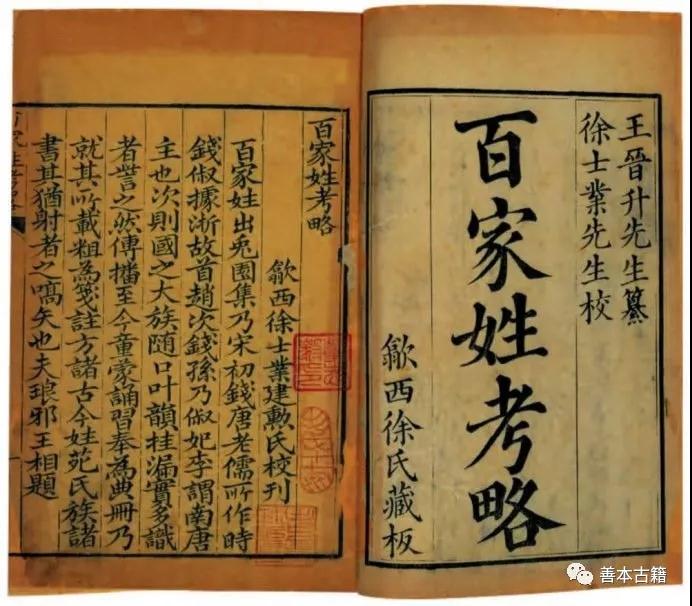 王晉升先生纂
徐士業先生校
百家姓考略
歙西徐氏藏板
百家姓考略
歙西徐士業建勲氏校刊
百家姓出兎園集乃宋初錢唐老儒所作時
錢俶據浙故首趙次錢孫乃俶妃李謂南唐
主也次則國之大族随口叶韻挂漏實多識
者訾之然傳播至今童蒙誦習奉為典冊乃
就其所載粗為箋註方諸古今姓苑氏族諸
書其猶射者之嚆矢也夫琅邪王相題
百家姓考略
善本古籍